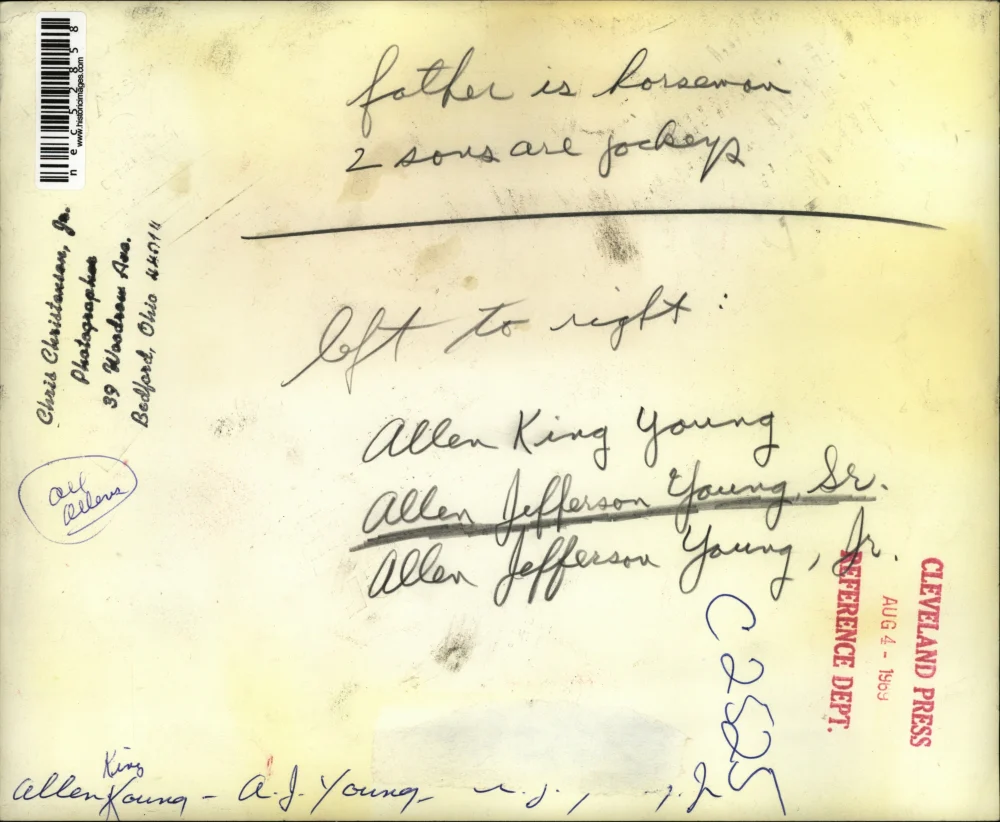 father is horseman
2 sons are jockeys
left to right:
Allen King Young
Allen Jefferson Young, Sr.
Allen Jefferson Young, Jr.
nec52858
www.historicimages.com
Chris Christensen, Jr.
Photographer
39 Woodrow Ave.
Bedford, Ohio
all
Allens
CLEVELAND PRESS
AUG 4 - 1969
REFERENCE DEPT.
C2525
King
Allen Young - A.J. Young